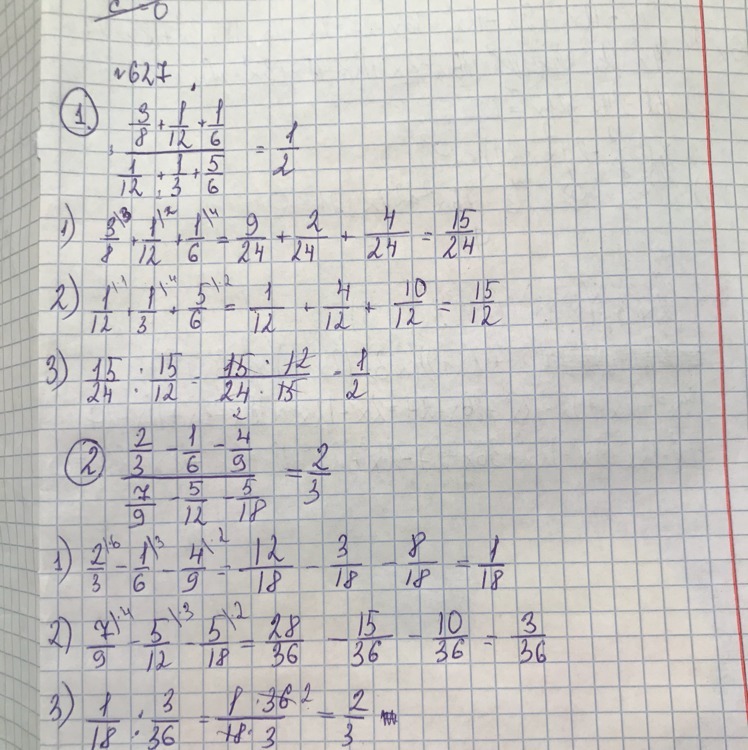 c = 0
№627
① (3/8 + 1/12 + 1/6) / (1/12 + 1/3 + 5/6) = 1/2
1) 3/8\3 + 1/12\2 + 1/6\4 = 9/24 + 2/24 + 4/24 = 15/24
2) 1/12\1 + 1/3\4 + 5/6\2 = 1/12 + 4/12 + 10/12 = 15/12
3) 15/24 : 15/12 = 15 · 12 / 24 · 15 = 1/2
2
② (2/3 - 1/6 - 4/9) / (7/9 - 5/12 - 5/18) = 2/3
1) 2/3\6 - 1/6\3 - 4/9\2 = 12/18 - 3/18 - 8/18 = 1/18
2) 7/9\4 - 5/12\3 - 5/18\2 = 28/36 - 15/36 - 10/36 = 3/36
3) 1/18 : 3/36 = 1 · 36 2 / 18 · 3 = 2/3